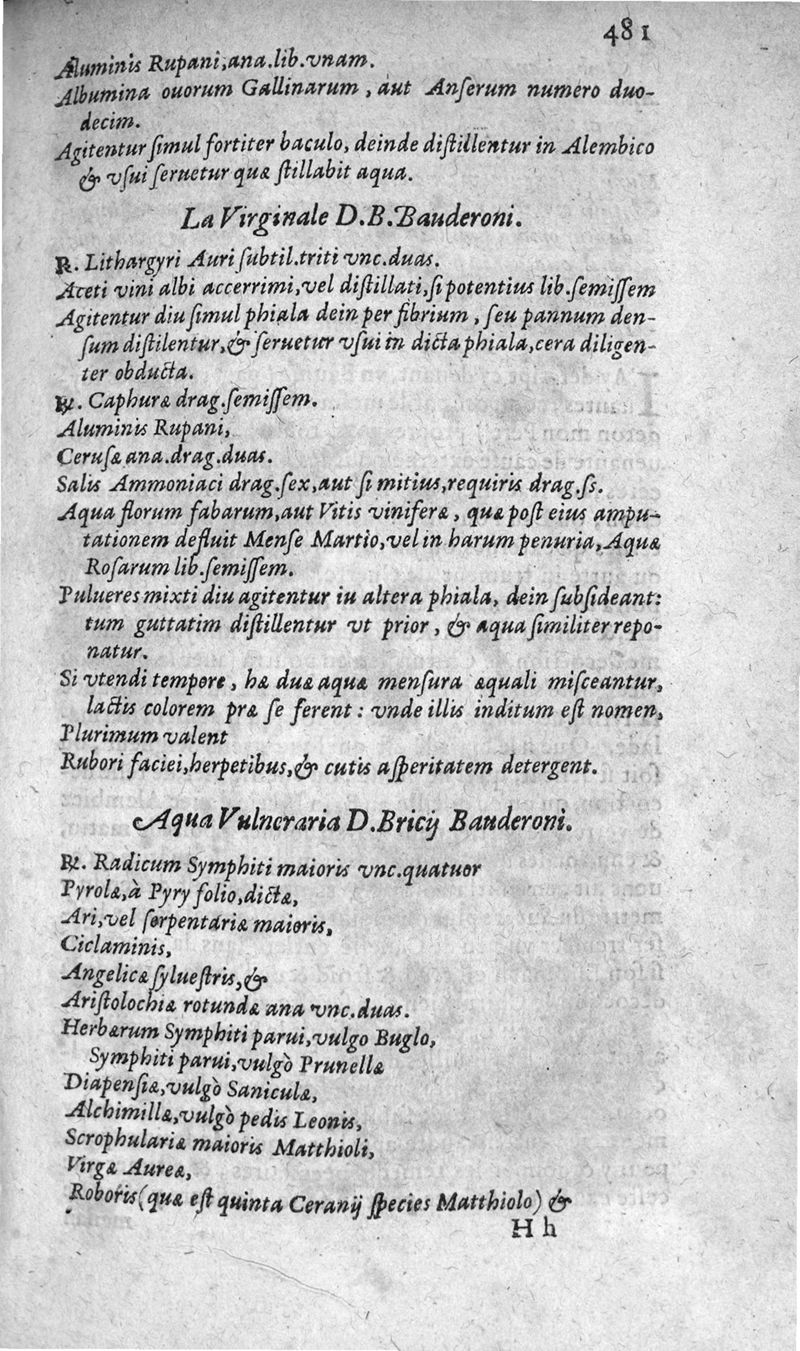 481
Aluminis Rupani,ana.lib.vnam.
Albumina ouorum Gallinarum, aut Anſerum numero duo-
decim.
Agitentur ſimul fortiter baculo, deinde diſtillentur in Alembico
& vſui ſeruetur quæ ſtillabit aqua.
La Virginale D.B.Bauderoni.
℞. Lithargyri Auri ſubtil.triti vnc.duas.
Aceti vini albi accerrimi,vel diſtillati,ſi potentius lib.ſemiſſem
Agitentur diu ſimul phiala dein per fibrium, ſeu pannum den-
ſum diſtilentur,& ſeruetur vſui in dicta phiala,cera diligen-
ter obducta.
℞. Caphuræ drag.ſemiſſem.
Aluminis Rupani,
Ceruſæ ana.drag.duas.
Salis Ammoniaci drag.ſex,aut ſi mitius,requiris drag.ſs.
Aqua florum fabarum,aut Vitis viniferæ, quæ poſt eius ampu-
tationem defluit Menſe Martio,vel in harum penuria,Aquæ
Roſarum lib.ſemiſſem.
Pulueres mixti diu agitentur iu altera phiala, dein ſubſideant:
tum guttatim diſtillentur vt prior, & aqua ſimiliter repo-
natur.
Si vtendi tempore, hæ duæ aquæ menſura æquali miſceantur,
lactis colorem præ ſe ferent: vnde illis inditum eſt nomen,
Plurimum valent
Rubori faciei,herpetibus,& cutis aſperitatem detergent.
Aqua Vulneraria D.Bricij Bauderoni.
℞. Radicum Symphiti maioris vnc.quatuor
Pyrolæ,à Pyry folio,dictæ,
Ari,vel ſerpentariæ maioris,
Ciclaminis,
Angelicæ ſylueſtris,&
Ariſtolochiæ rotundæ ana vnc.duas.
Herbarum Symphiti parui,vulgo Buglo,
Symphiti parui,vulgò Prunellæ
Diapenſiæ,vulgò Saniculæ,
Alchimillæ,vulgò pedis Leonis,
Scrophulariæ maioris Matthioli,
Virgæ Aureæ,
Roboris(quæ eſt quinta Ceranij ſpecies Matthiolo) &
H h